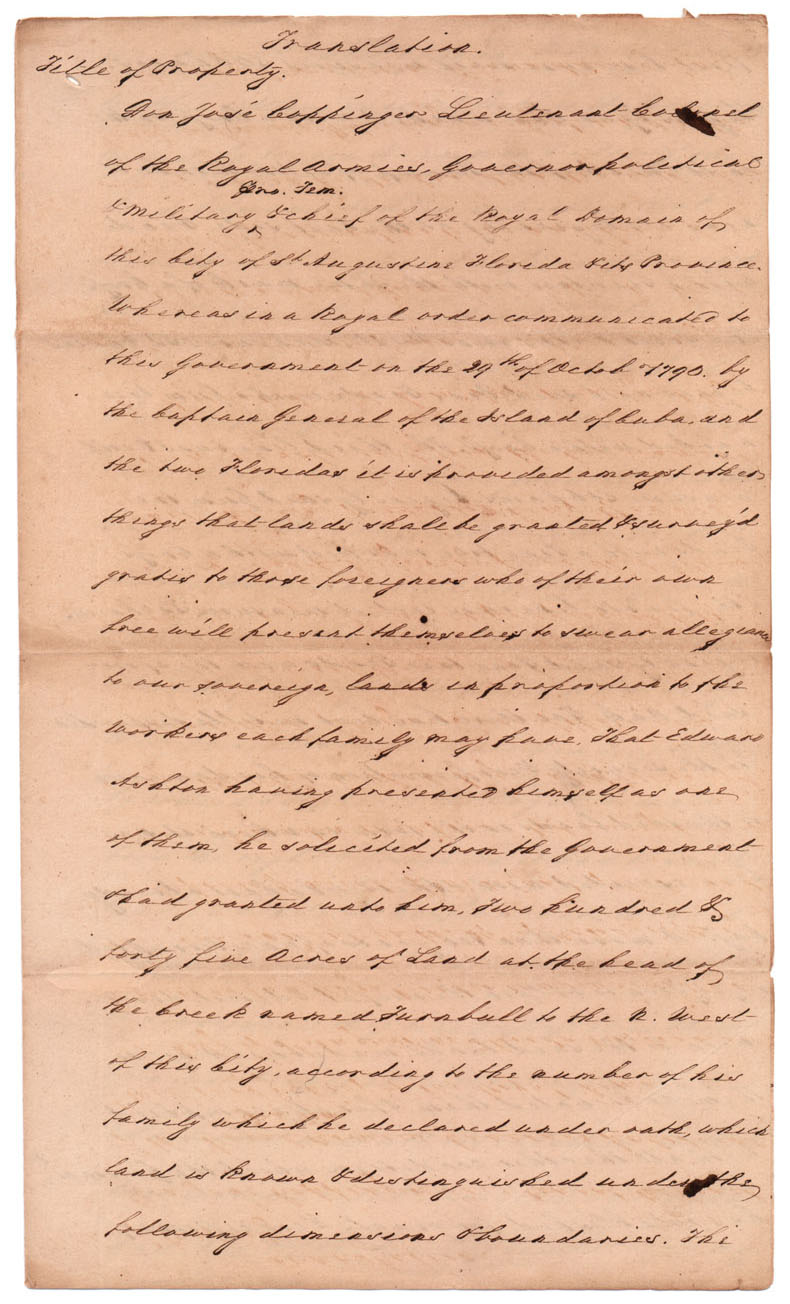 Translation.
Title of Property.
Don José Coppinger Lieutenant Colonel
of the Royal Armies, Governor political
Pro. Tem.
& Military & chief of the Royal Domain of
this City of St Augustine Florida & its Province.
Whereas in a Royal order communicated to
this Government on the 29th of Octobr 1790. by
the Captain General of the Island of Cuba, and
the two Floridas it is provided amongst other
things that lands shall be granted & survey'd
gratis to those foreigners who of their own
free will present themselves to swear allegiance
to our sovereign, lands in proportion to the
workers each family may have. That Edward
Ashton having presented himself as one
of them, he solicited from the Government
& had granted unto him, Two hundred &
forty five Acres of Land at the head of
the Creek named Turnbull to the N. West
of this City, according to the number of his
family which he declared under oath, which
land is known & distinguished under the
following dimensions & boundaries. The